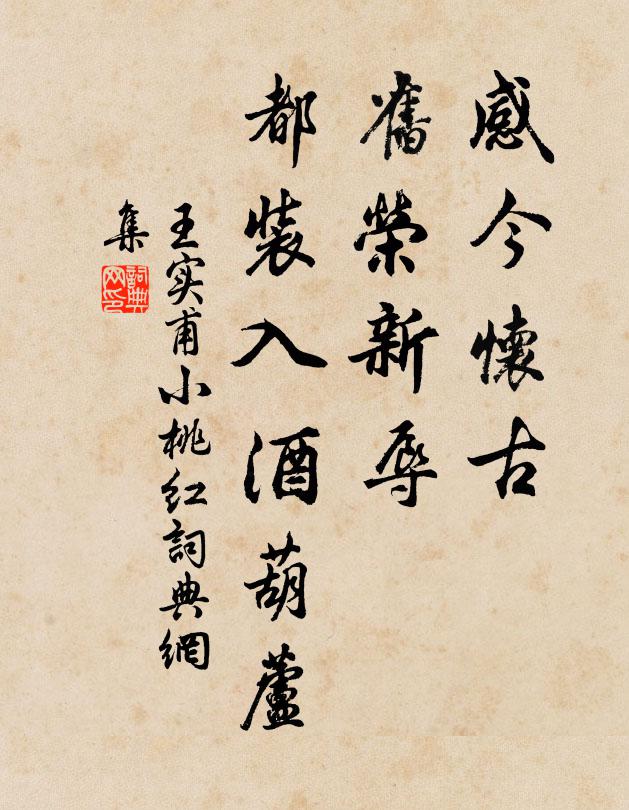 感今懷古
舊榮新辱
都裝入酒葫蘆
王实甫小桃红詞典網
集
詞典网印